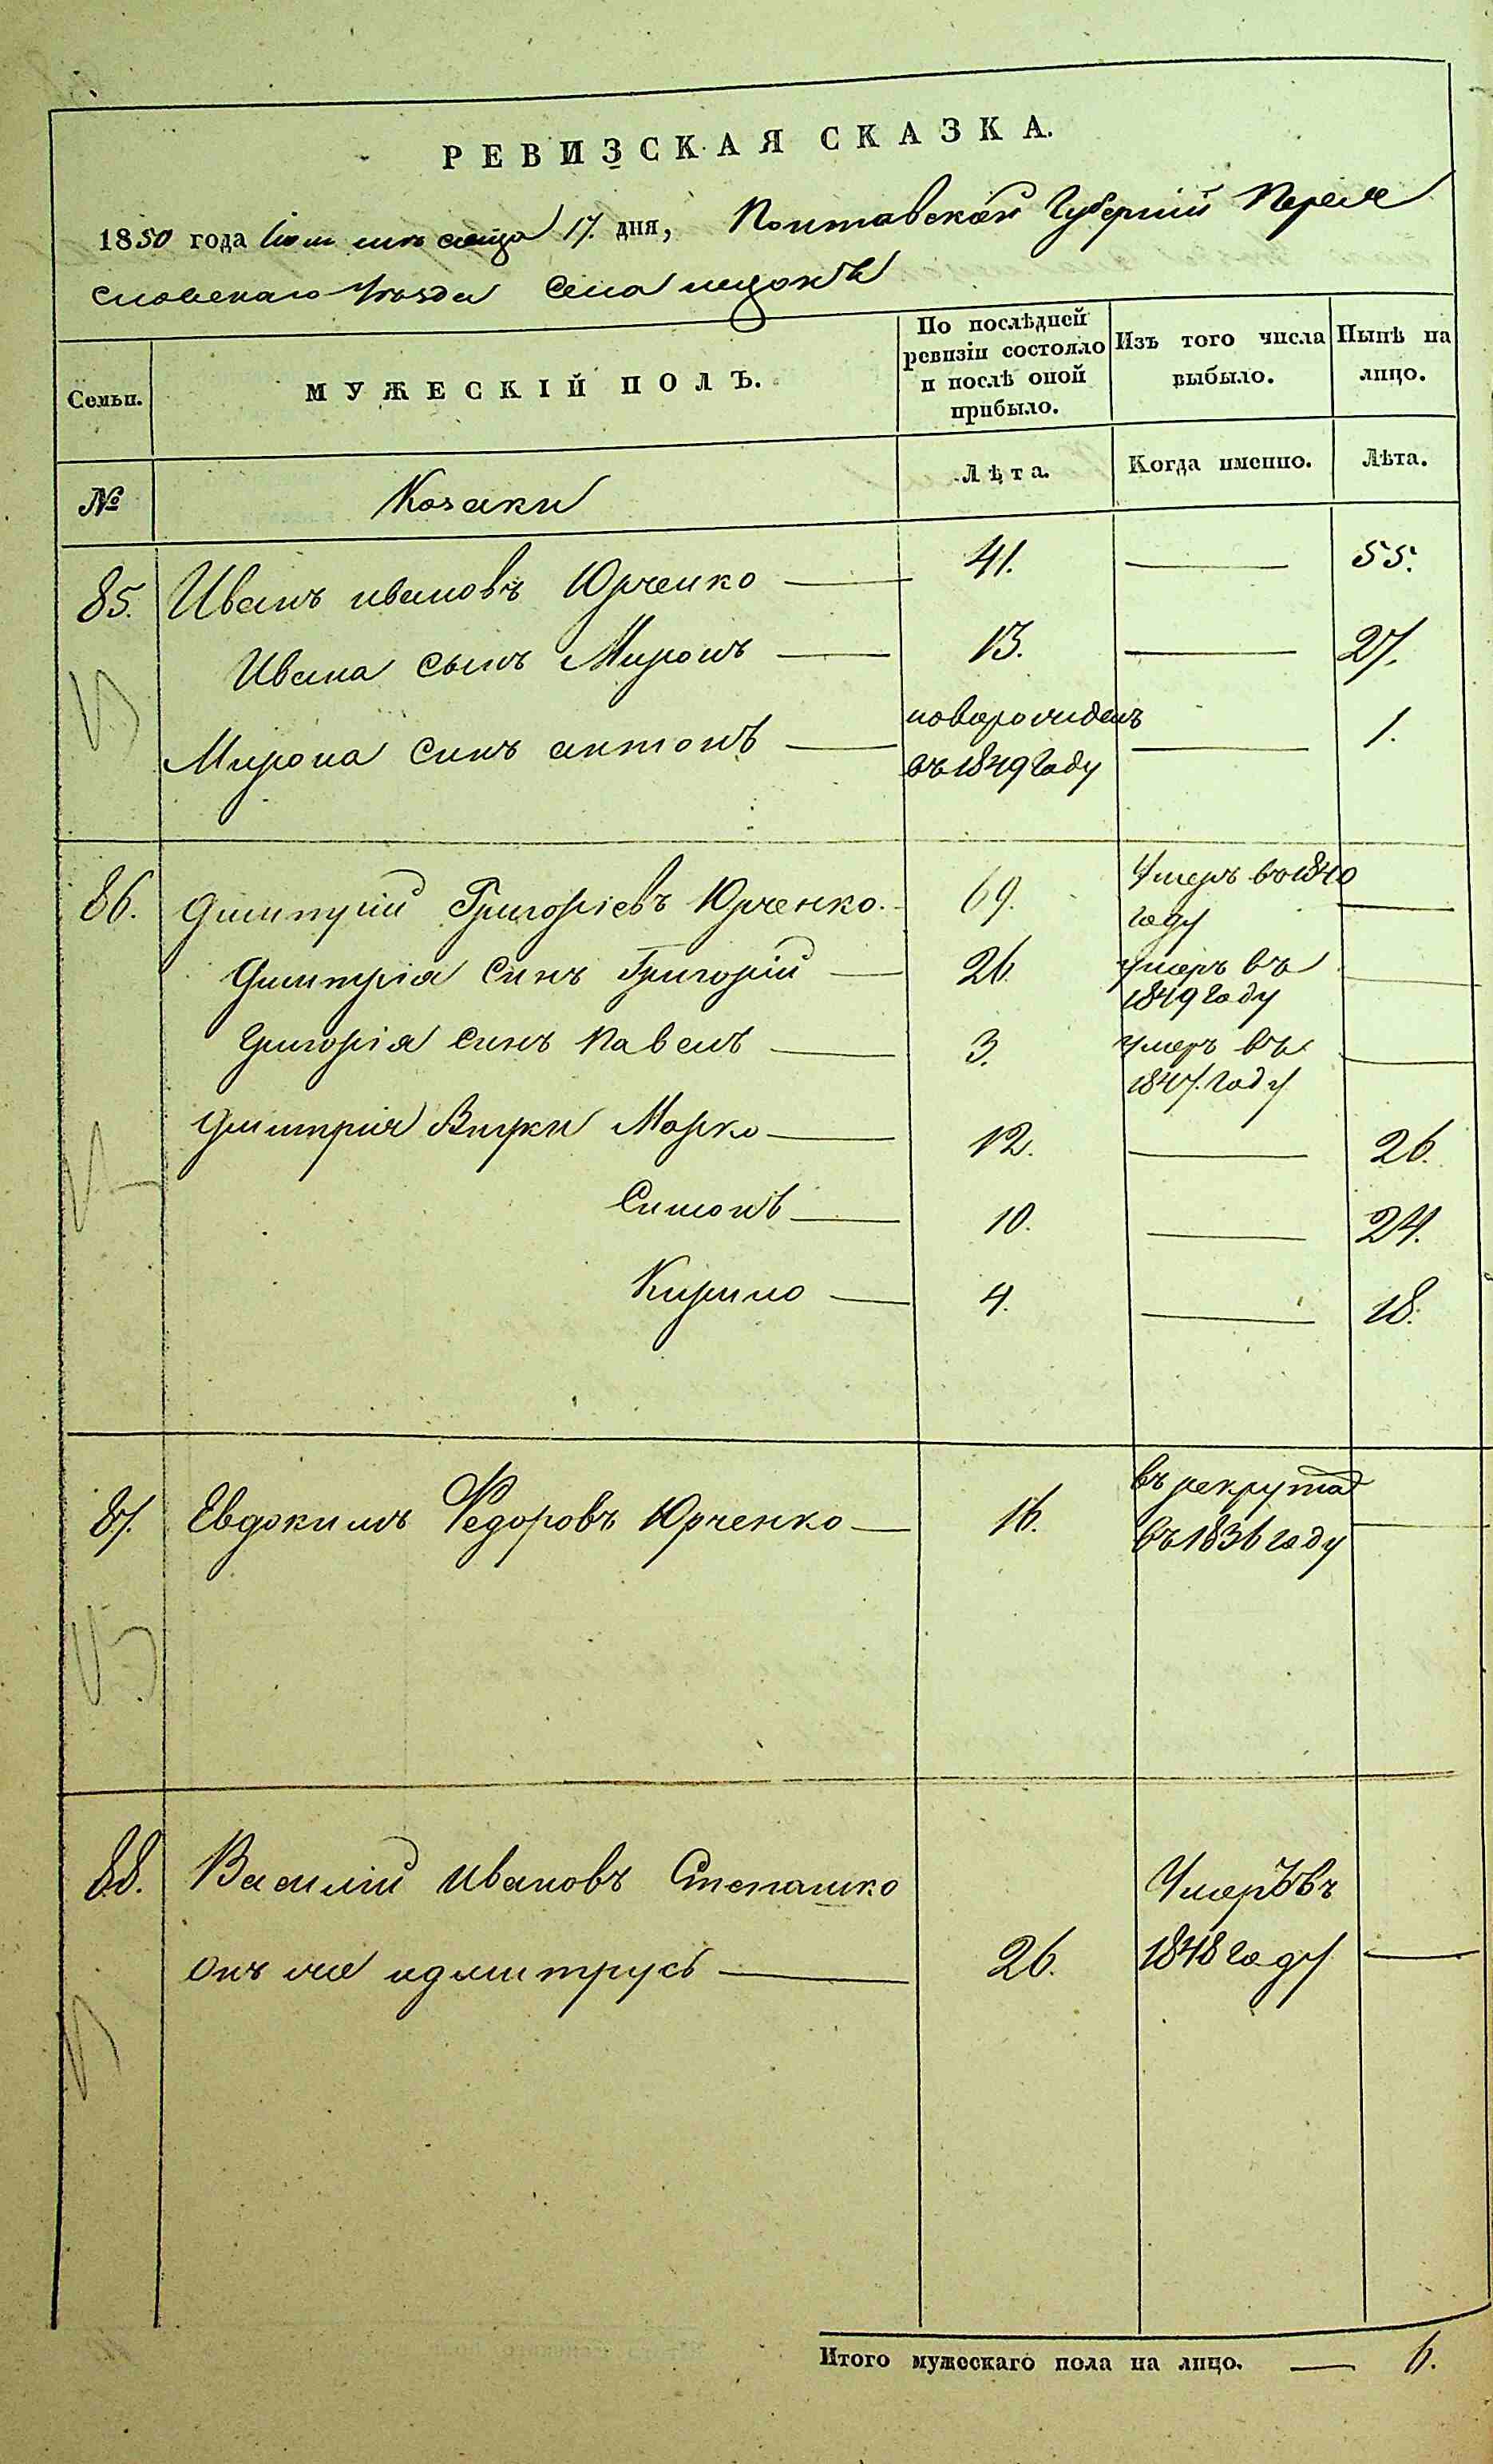 РЕВИЗСКАЯ СКАЗКА.
1850 года месяца 17. дня, Полтавской Губерніи Перея
славскаго Уѣзда Села
Семьи. МУЖЕСКІЙ ПОЛЪ. По послѣдней ревизіи состояло и послѣ оной прибыло. Изъ того числа выбыло. Нынѣ на лицо.
№ Козаки Лѣта. Когда именно. Лѣта.
85. Иванъ ивановъ Юрченко — 41. — 55.
Ивана сынъ Миронъ — 13. — 27.
Мирона синъ антонъ — новорожденъ въ 1849 году — 1.
86. Дмитрій Григоріевъ Юрченко. 69. Умеръ въ 1840 году —
Дмитрія синъ Григорій — 26. умеръ въ 1849 году —
Григорія синъ павелъ — 3. умеръ въ 1847. году —
Дмитрія Внуки Марко — 12. — 26.
Симонъ — 10. — 24.
Кирило — 4. — 18.
87. Евдокимъ Федоровъ Юрченко — 16. въ рекрута въ 1836 году —
88. Василій ивановъ Степашко
онъ же идмитрусь — 26. Умеръ въ 1848 году —
Итого мужескаго пола на лицо. — 6.